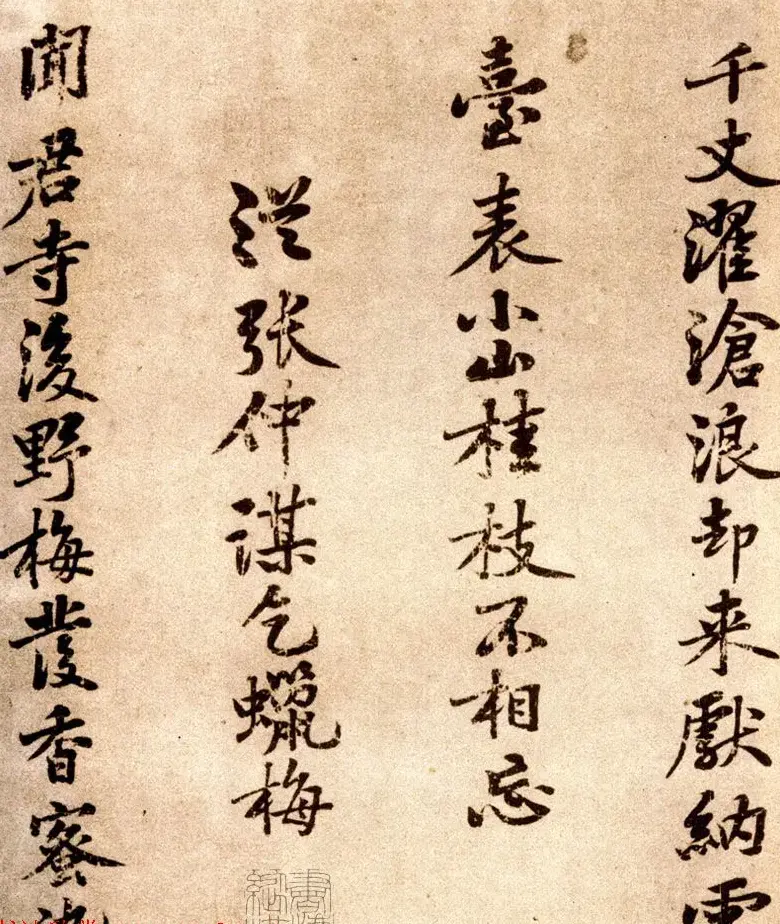 千丈濯滄浪却来獻納雲
臺表小山桂枝不相忘
從張仲謀乞蠟梅
聞君寺後野梅發香蜜